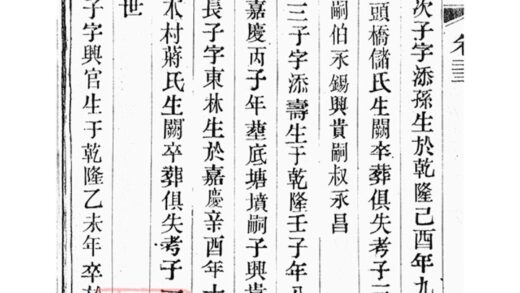 卷三
次子字添孫生於乾隆己酉年九
頭橋儲氏生闕卒葬俱失考子
嗣伯永錫興貴嗣叔永昌
三子字添壽生于乾隆壬子年八
嘉慶丙子年塟底塘墳嗣子興貴
長子字東林生於嘉慶辛酉年十
水村蔣氏生闕卒葬俱失考子一
世
子字興官生于乾隆乙未年卒於